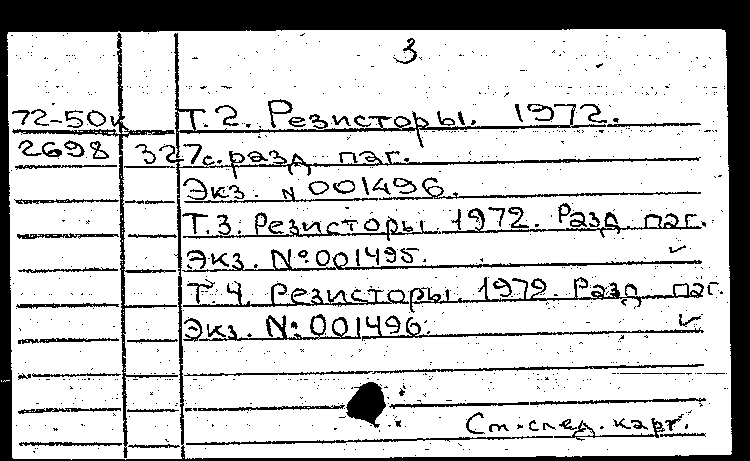 3
72-50к Т.2. Резисторы. 1972.
2698 327с. разд. паг.
Экз. N 001496.
Т.3. Резисторы. 1972. Разд. паг.
Экз. №001495.
Т.4. Резисторы. 1979. Разд. паг.
Экз. №001496.
См. след. карт.